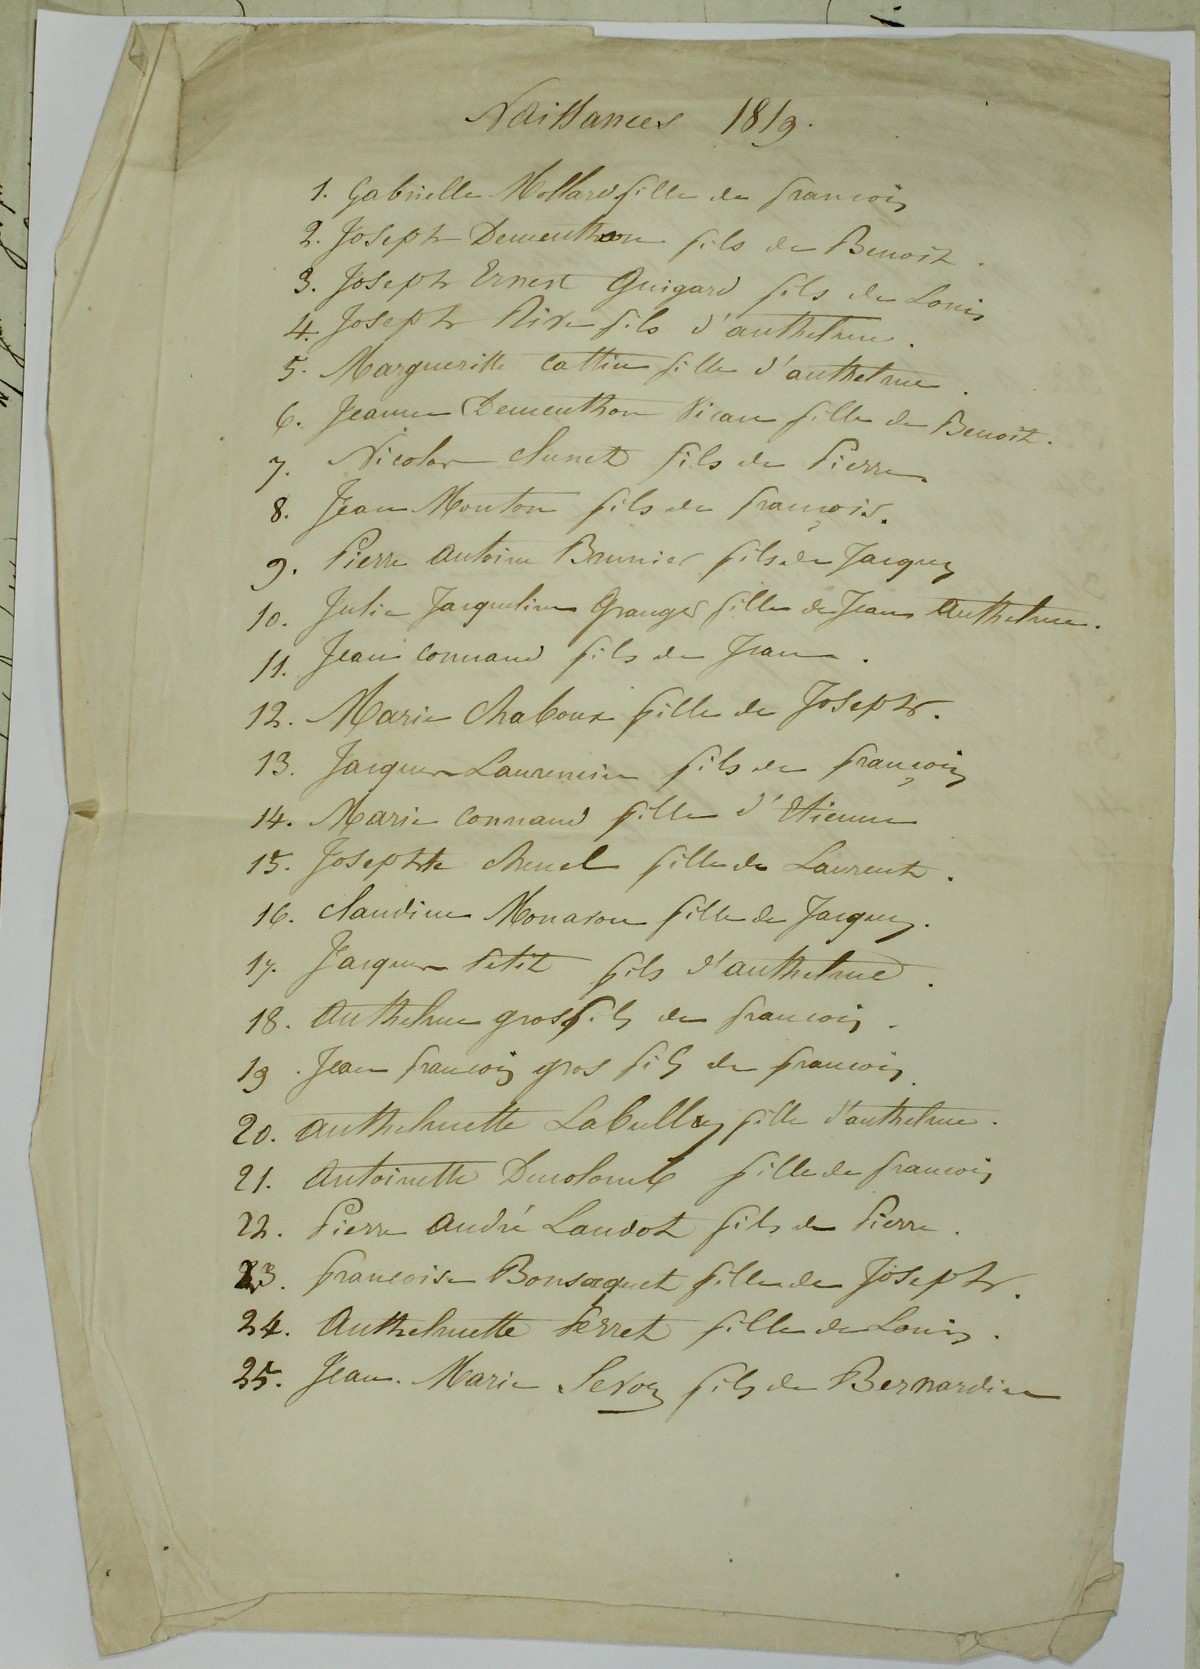 Naissances 1819.
1. Gabrielle Mollard fille de francois
2. Joseph Dementhon fils de Benoit.
3. Joseph Ernest Guigard fils de Louis
4. Joseph Rive fils d'anthelme.
5. Margueritte Cattin fille d'anthelme.
6. Jeanne Dementhon fille de Benoit.
7. Nicolas fils de Pierre.
8. Jean Mouton fils de françois.
9. Pierre Antoine Brunier fils de Jacques
10. Julie Jacqueline Granger fille de Jean Anthelme.
11. Jean Connand fils de Jean.
12. Marie Chaboux fille de Joseph.
13. Jacques Laurencin fils de françois
14. Marie Connand fille d'Etienne
15. Josephte fille de Laurent.
16. Claudine fille de Jacques.
17. Jacques Petit fils d'anthelme.
18. Anthelme gros fils de francois.
19. Jean francois gros fils de francois.
20. Anthelmette fille d'anthelme.
21. Antoinette Ducolomb fille de francois
22. Pierre André Laudot fils de Pierre.
23. francoise Bonsacquet fille de Joseph.
24. Anthelmette Perret fille de Louis.
25. Jean Marie Sevoz fils de Bernardine